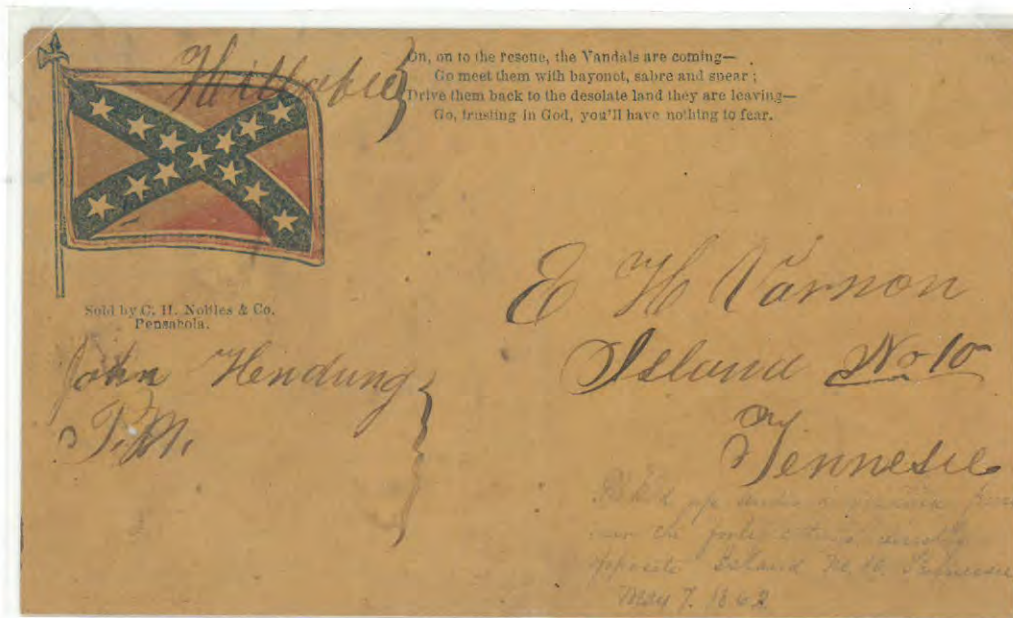 Hillabee
On, on to the rescue, the Vandals are coming—
Go meet them with bayonet, sabre and spear;
Drive them back to the desolate land they are leaving—
Go, trusting in God, you'll have nothing to fear.
Sold by C. H. Nobles & Co.
Pensacola.
John Hendung
P.M.
E H Varnon
Island No 10
Tennesee
Pick'd up under a
over the fortifications
opposite Island No. 10, Tennessee
May 7. 1862